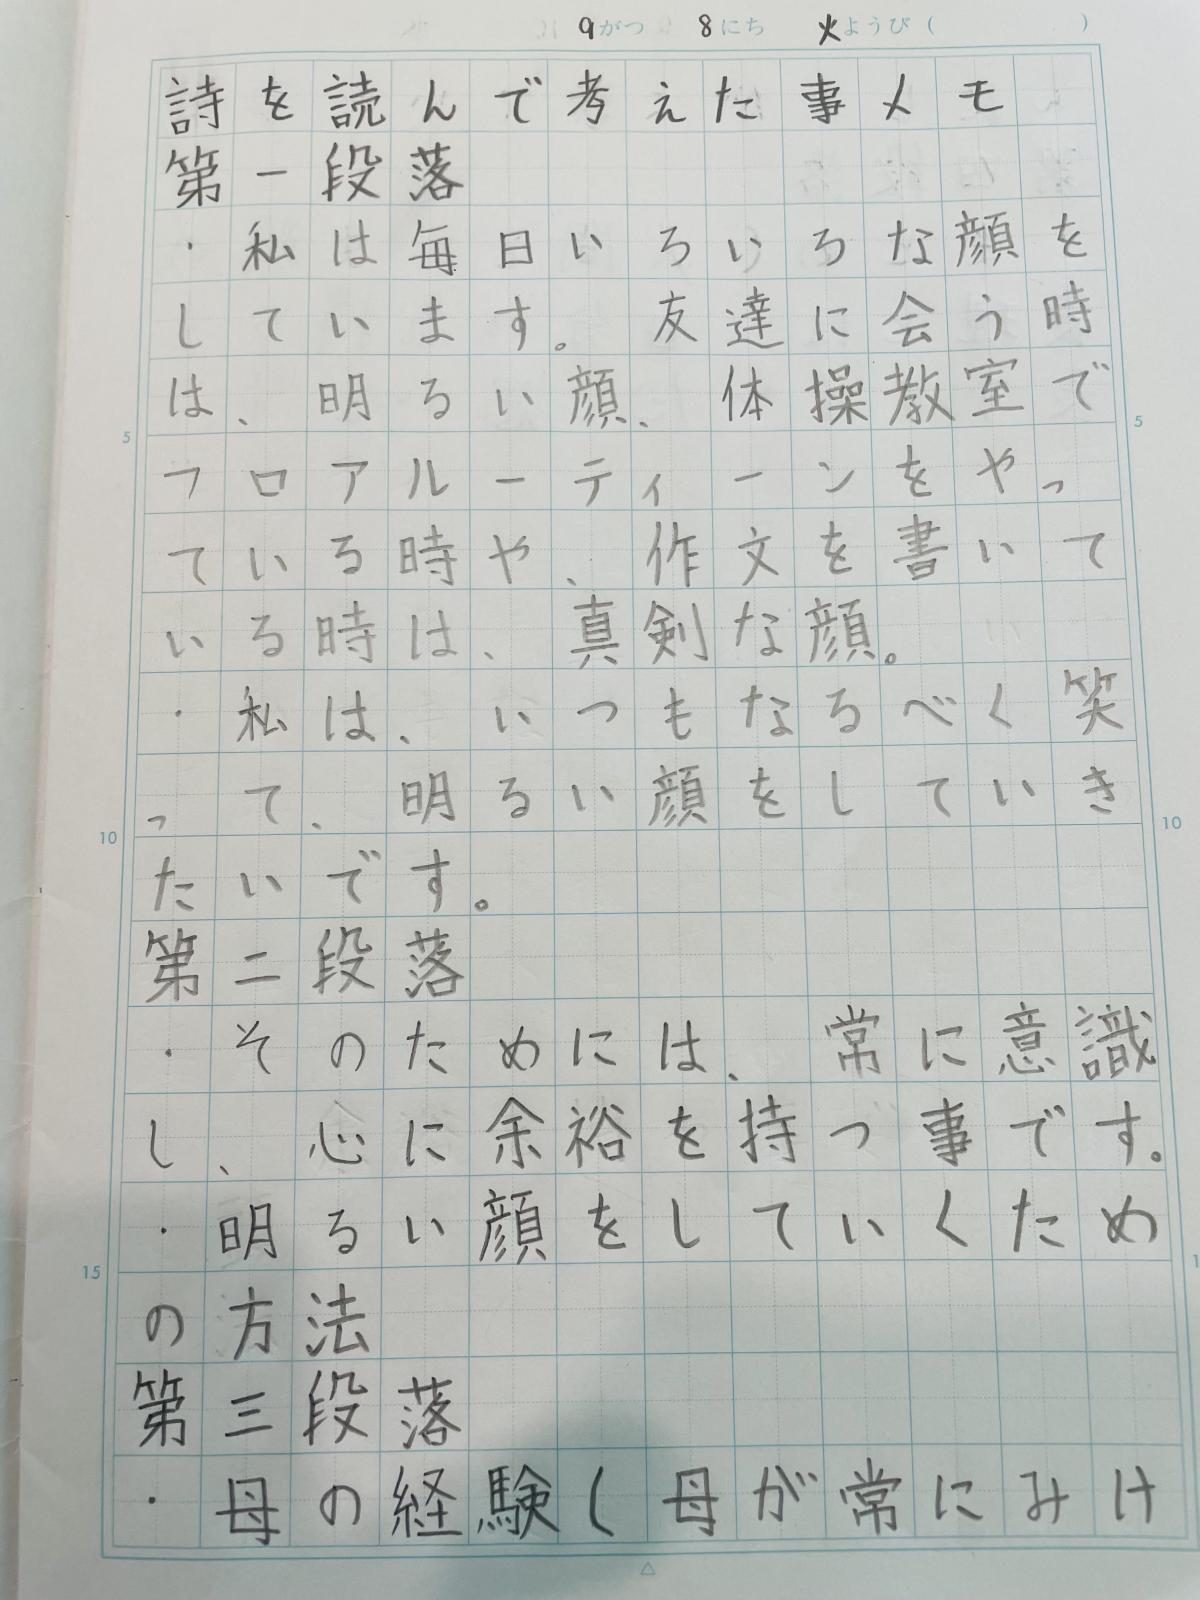 9がつ 8にち 火ようび( )
詩を読んで考えた事メモ
第一段落
・私は毎日いろいろな顔を
しています。友達に会う時
は、明るい顔、体操教室で
フロアルーティーンをやっ
ている時や、作文を書いて
いる時は、真剣な顔。
・私は、いつもなるべく笑
って、明るい顔をしていき
たいです。
第二段落
・そのためには、常に意識
し、心に余裕を持つ事です。
・明るい顔をしていくため
の方法
第三段落
・母の経験(母が常にみけ
5
10
15
5
10